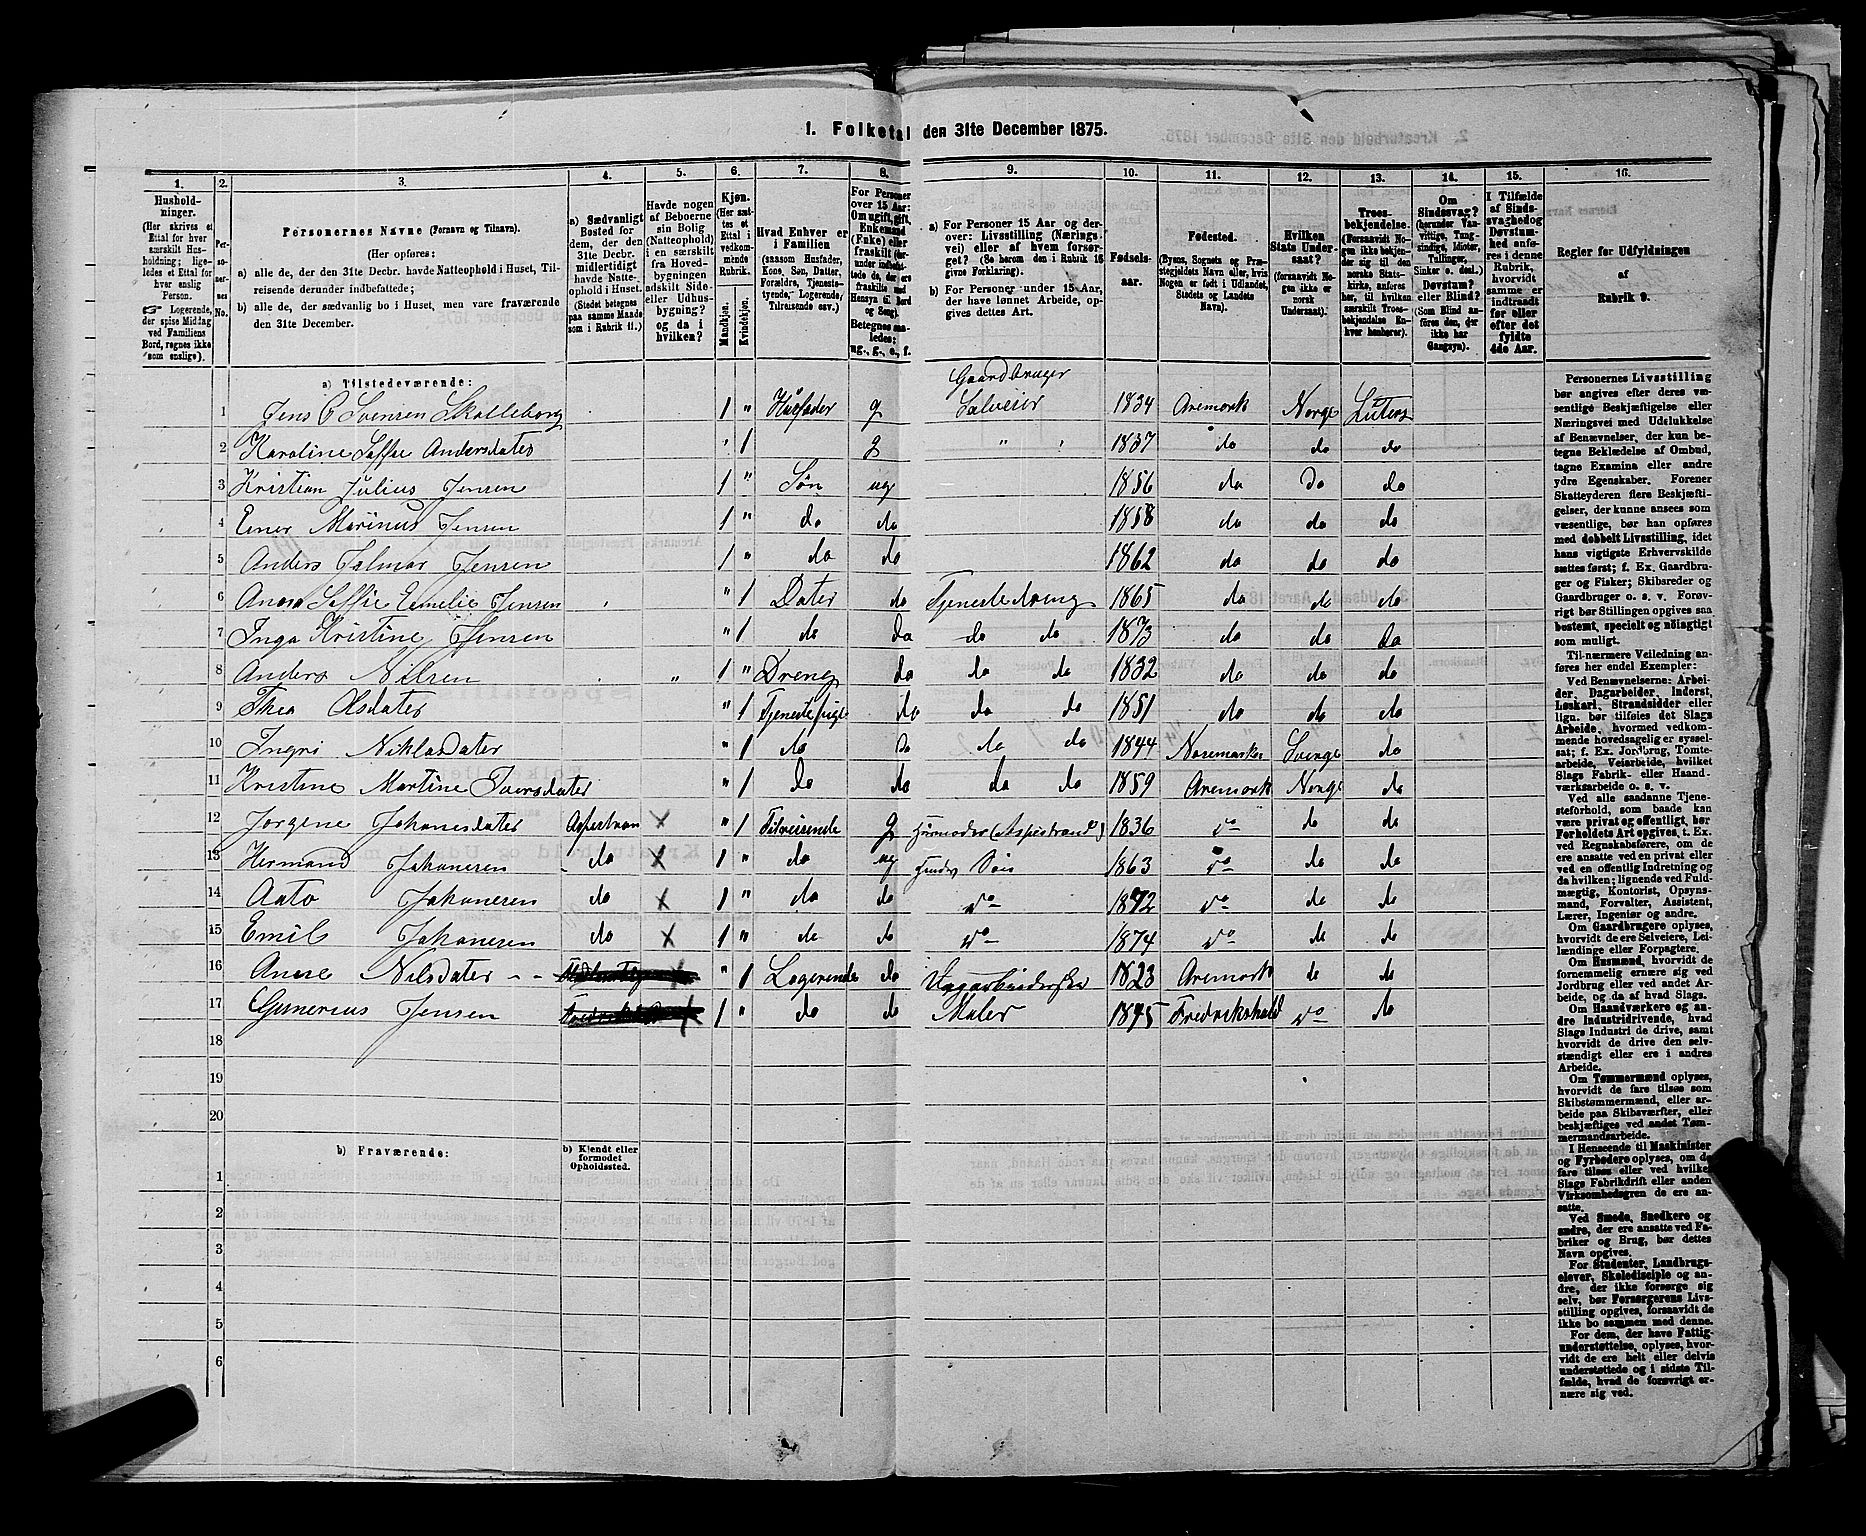 1. Folketal den 31te December 1875.
1. 2. 3. 4. 5. 6. 7. 8. 9. 10. 11. 12. 13. 14. 15. 16.
Husholdninger. (Her skrives et Ettal for hver særskilt Husholdning; ligeledes et Ettal for hver enslig Person. ☞ Logerende, der spise Middag ved Familiens Bord, regnes ikke som enslige).
Personernes No.
Personernes Navne (Fornavn og Tilnavn).
(Her opføres:
a) alle de, der den 31te Decbr. havde Natteophold i Huset, Tilreisende derunder indbefattede;
b) alle de, der sædvanlig bo i Huset, men vare fraværende den 31te December.
a) Sædvanligt Bosted for dem, der den 31te Decbr. midlertidigt havde Natteophold i Huset. (Stedet betegnes paa samme Maade som i Rubrik 11.)
Havde nogen af Beboerne sin Bolig (Natteophold) i en særskilt fra Hovedbygningen adskilt Side- eller Udhusbygning? og da i hvilken?
Kjøn. (Her sættes et Ettal i vedkommende Rubrik.
Mandkjøn. Kvindekjøn.
Hvad Enhver er i Familien (saasom Husfader, Kone, Søn, Datter, Forældre, Tjenestetyende, Logerende, Tilreisende osv.)
For Personer over 15 Aar: Om ugift, gift, Enkemand (Enke) eller fraskilt
Betegnes saaledes: ug., g., e., f.
a) For Personer 15 Aar og derover: Livsstilling (Næringsvei) eller af hvem forsørget? (Se herom den i Rubrik 16 givne Forklaring).
b) For Personer under 15 Aar, der have lønnet Arbeide, opgives dettes Art.
Fødselsaar.
Fødested. (Byens, Sognets og Præstegjeldets Navn eller, hvis Nogen er født i Udlandet, Stedets og Landets Navn).
Hvilken Stats Undersaat? (forsaavidt Nogen ikke er norsk Undersaat).
Troesbekjendelse. (Forsaavidt Nogen ikke bekjender sig til den norske Statskirke, anføres her, til hvilken særskilt Troesbekjendelse Enhver henhører).
Om Sindssvag? (herunder Vanvittige, Tungsindige, Idioter, Tullinger, Sinker o. desl.) Døvstum? eller Blind? (Som Blind anføres den, der ikke har Gangsyn).
I Tilfælde af Sindssvaghed og Døvstumhed anføres i denne Rubrik, hvorvidt samme er indtraadt før eller efter det fyldte 4de Aar.
Regler for Udfyldningen af Rubrik 9.
a) Tilstedeværende:
Gaardbruger
1 Jens Svensen Skolleborg 1 " Husfader g Selveier 1834 Aremark Norge Luters
2 Karoline Soffie Andersdater " 1 g " 1837 do do do
3 Kristian Julius Jensen 1 " Søn ug 1856 do Do do
4 Einer Marinus Jensen 1 " do do 1858 do do do
5 Anders Jalmar Jensen 1 " do do 1862 do do do
6 Anna Soffie Emelie Jensen " 1 Dater do 1865 do do do
7 Inga Kristine Jensen " 1 do do do do 1873 do do do
8 Anders Nilsen " 1 " Dreng do do do 1832 do do do
9 Thea Olsdater " 1 Tjenestepige do do do 1851 do do do
10 Ingri Niklasdater " 1 do do do do 1844 Noremarker Sverige do
11 Kristine Martine Iversdater " 1 do do do do 1859 Aremark Norge do
12 Jørgene Johanesdater Aspestran x " 1 Tilreisende g Husmoder (Aspestrand) 1836 do do do
13 Hermand Johanesen do x 1 " do ug hendes Søn 1863 do do do
14 Anto Johanesen do x 1 " do do do 1872 do do do
15 Emil Johanesen do x 1 " do do do 1874 do do do
16 Anne Nilsdater " 1 Logerende do 1823 Aremark do do
17 Gunerius Jensen 1 " do do Maler 1845 Fredrikshald do do
18
19
20
b) Fraværende: b) Kjendt eller formodet Opholdssted.
1
2
3
4
5
6
Personernes Livsstilling
bør angives efter deres væsentlige
Beskjæftigelse eller
Næringsvei med Udelukkelse
af Benævnelser, der kun betegne
Beklædelse af Ombud,
tagne Examina eller andre
ydre Egenskaber. Forener
Skatteyderen flere Beskjæftigelser,
der kunne ansees som
væsentlige, bør han opføres
med dobbelt Livsstilling, idet
hans vigtigste Erhvervskilde
sættes først; f. Ex. Gaardbruger
og Fisker; Skibsreder og
Gaardbruger o. s. v. Forøvrigt
bør Stillingen opgives saa
bestemt, specielt og nøiagtigt
som muligt.
Til nærmere Veiledning anføres
her endel Exempler:
Ved Benævnelserne: Arbeider,
Dagarbeider, Inderst,
Løskarl, Strandsidder eller
lign. bør tilføies det Slags
Arbeide, hvormed vedkommende
hovedsagelig er sysselsat;
f. Ex. Jordbrug, Tomtearbeide,
Veiarbeide, hvilket
Slags Fabrik- eller Haandværksarbeide
o. s. v.
Ved alle saadanne Tjenesteforhold,
som baade kan
være privat og offentligt, bør
Forholdets Art opgives, t. Ex.
ved Regnskabsførere, om de
ere ansatte ved en privat eller
ved en offentlig Indretning og
da hvilken; lignende ved Fuldmægtig,
Kontorist, Opsynsmand,
Forvalter, Assistent,
Lærer, Ingeniør og andre.
Om Gaardbrugere oplyses,
hvorvidt de ere Selveiere, Leilændinge
eller Forpagtere.
Om Husmænd, hvorvidt de
fornemmelig ernære sig ved
Jordbrug eller ved andet Arbeide,
og da af hvad Slags.
Om Haandværkere og andre
Industridrivende, hvad
Slags Industri de drive, samt
hvorvidt de drive den selvstændigt
eller ere i andres
Arbeide.
Om Tømmermænd oplyses,
hvorvidt de fare tilsøs som
Skibstømmermænd, eller arbeide
paa Skibsværfter, eller
beskjæftiges ved andet Tømmermandsarbeide.
I Henseende til Maskinister
og Fyrbødere oplyses, om de
fare tilsøs eller ved hvilket
Slags Fabrikdrift eller anden
Virksomhedsgren de ere ansatte.
Ved Smede, Snedkere og
andre, der ere ansatte ved Fabriker
og Brug, bør dettes
Navn opgives.
For Studenter, Landbrugselever,
Skoledisciple og andre,
der ikke forsørge sig
selv, bør Forsørgerens Livsstilling
opgives, forsaavidt de
ikke bo sammen med denne.
For dem, der have Fattigunderstøttelse,
oplyses, hvorvidt
de ere helt eller delvis
understøttede og i sidste Tilfælde,
hvad de forøvrigt ernære
sig ved.